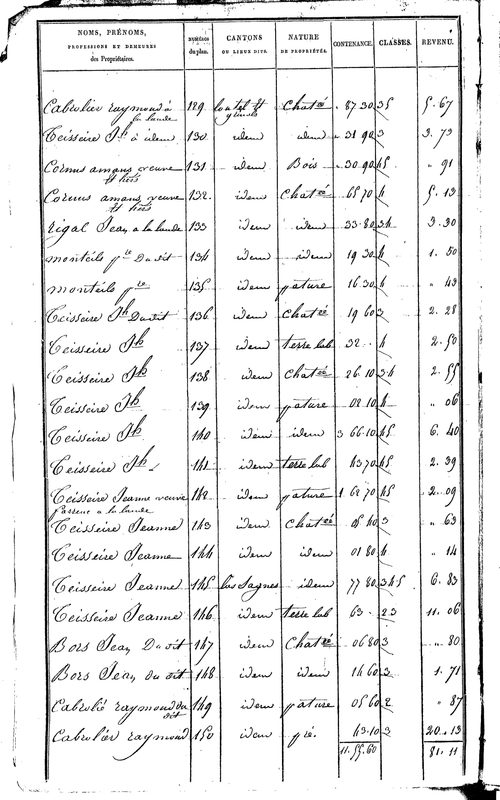 NOMS, PRÉNOMS, PROFESSIONS ET DEMEURES des Propriétaires. NUMÉROS du plan. CANTONS OU LIEUX DITS. NATURE DE PROPRIÉTÉS. CONTENANCE. CLASSES. REVENU.
Cabrolier raymond à la lande 129 idem chatée 87 30 35 5. 67
Teisseire Jh à idem 130 idem idem 31 90 3 3. 73
Cornus amans veuve et hérs 131 idem Bois 30 90 45 " 91
Cornus amans veuve et hérs 132 idem Chatée 65 70 4 5. 13
rigal Jean a la lande 133 idem idem 33 80 34 3. 30
monteils pre Dudit 134 idem idem 19 30 4 1. 50
monteils pre 135 idem pature 16 30 4 " 43
Teisseire Jh Dudit 136 idem chatée 19 60 3 2. 28
Teisseire Jh 137 idem terre lab 32 " 4 2. 50
Teisseire Jh 138 idem Chatée 26 10 34 2. 55
Teisseire Jh 139 idem pature 02 10 4 " 06
Teisseire Jh 140 idem idem 3 66 10 45 6. 40
Teisseire Jh 141 idem terre lab 43 70 45 2. 39
Teisseire Jeanne veuve 142 idem pature 1 62 70 45 2. 09
a la lande
Teisseire Jeanne 143 idem Chatée 05 40 3 " 63
Teisseire Jeanne 144 idem idem 01 80 4 " 14
Teisseire Jeanne 145 las Sagnes idem 77 80 345 6. 83
Teisseire Jeanne 146 idem terre lab 63 " 23 11. 06
Bors Jean Dudit 147 idem Chatée 06 80 3 " 80
Bors Jean du dit 148 idem idem 14 60 3 1. 71
Cabrolié raymond du dit 149 idem pature 05 60 2 " 87
Cabrolier raymond 150 idem pré. 43 10 3 20. 13
11. 55. 60 81. 11